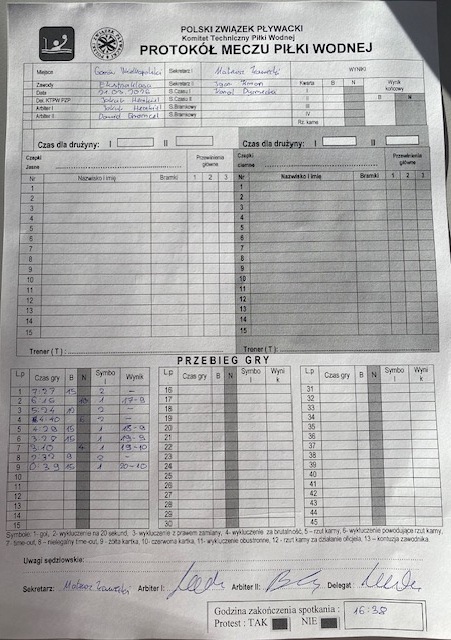 POLSKI ZWIĄZEK PŁYWACKI
Komitet Techniczny Piłki Wodnej
PROTOKÓŁ MECZU PIŁKI WODNEJ
Miejsce Sekretarz I Mateusz WYNIKI
Zawody Ekstraklasa Sekretarz II Kwarta B N Wynik końcowy
Data S.Czasu I I
Del. KTPW PZP Jakub S.Czasu II II B N
Arbiter I Jakub S.Bramkowy III
Arbiter II Dawid S.Bramkowy IV
Rz. karne
Czas dla drużyny: I II Czas dla drużyny: I II
Czepki jasne Przewinienia główne Czepki ciemne Przewinienia główne
Nr Nazwisko i imię Bramki 1 2 3 Nr Nazwisko i imię Bramki 1 2 3
1 1
2 2
3 3
4 4
5 5
6 6
7 7
8 8
9 9
10 10
11 11
12 12
13 13
14 14
15 15
Trener ( T ) : Trener ( T ):
PRZEBIEG GRY
L.p Czas gry B N Symbol Wynik L.p Czas gry B N Symbol Wynik L.p Czas gry B N Symbol Wynik
1 7:27 15 2 – 16 31
2 6:15 1 17-9 17 32
3 5:24 2 – 18 33
4 4:40 2 – 19 34
5 4:28 15 1 18-9 20 35
6 3:28 15 1 19-9 21 36
7 3:10 4 1 19-10 22 37
8 2:32 9 2 – 23 38
9 0:39 15 1 20-10 24 39
10 25 40
11 26 41
12 27 42
13 28 43
14 29 44
15 30 45
Symbole: 1- gol, 2- wykluczenie na 20 sekund, 3- wykluczenie z prawem zamiany, 4- wykluczenie za brutalność, 5 – rzut karny, 6- wykluczenie powodujące rzut karny,
7- time-out, 8 – nielegalny time-out, 9 - żółta kartka, 10- czerwona kartka, 11- wykluczenie obustronne, 12 - rzut karny za działanie oficjela, 13 – kontuzja zawodnika.
Uwagi sędziowskie:
Sekretarz: Mateusz Arbiter I: Arbiter II: Delegat
Godzina zakończenia spotkania : 16:38
Protest : TAK NIE